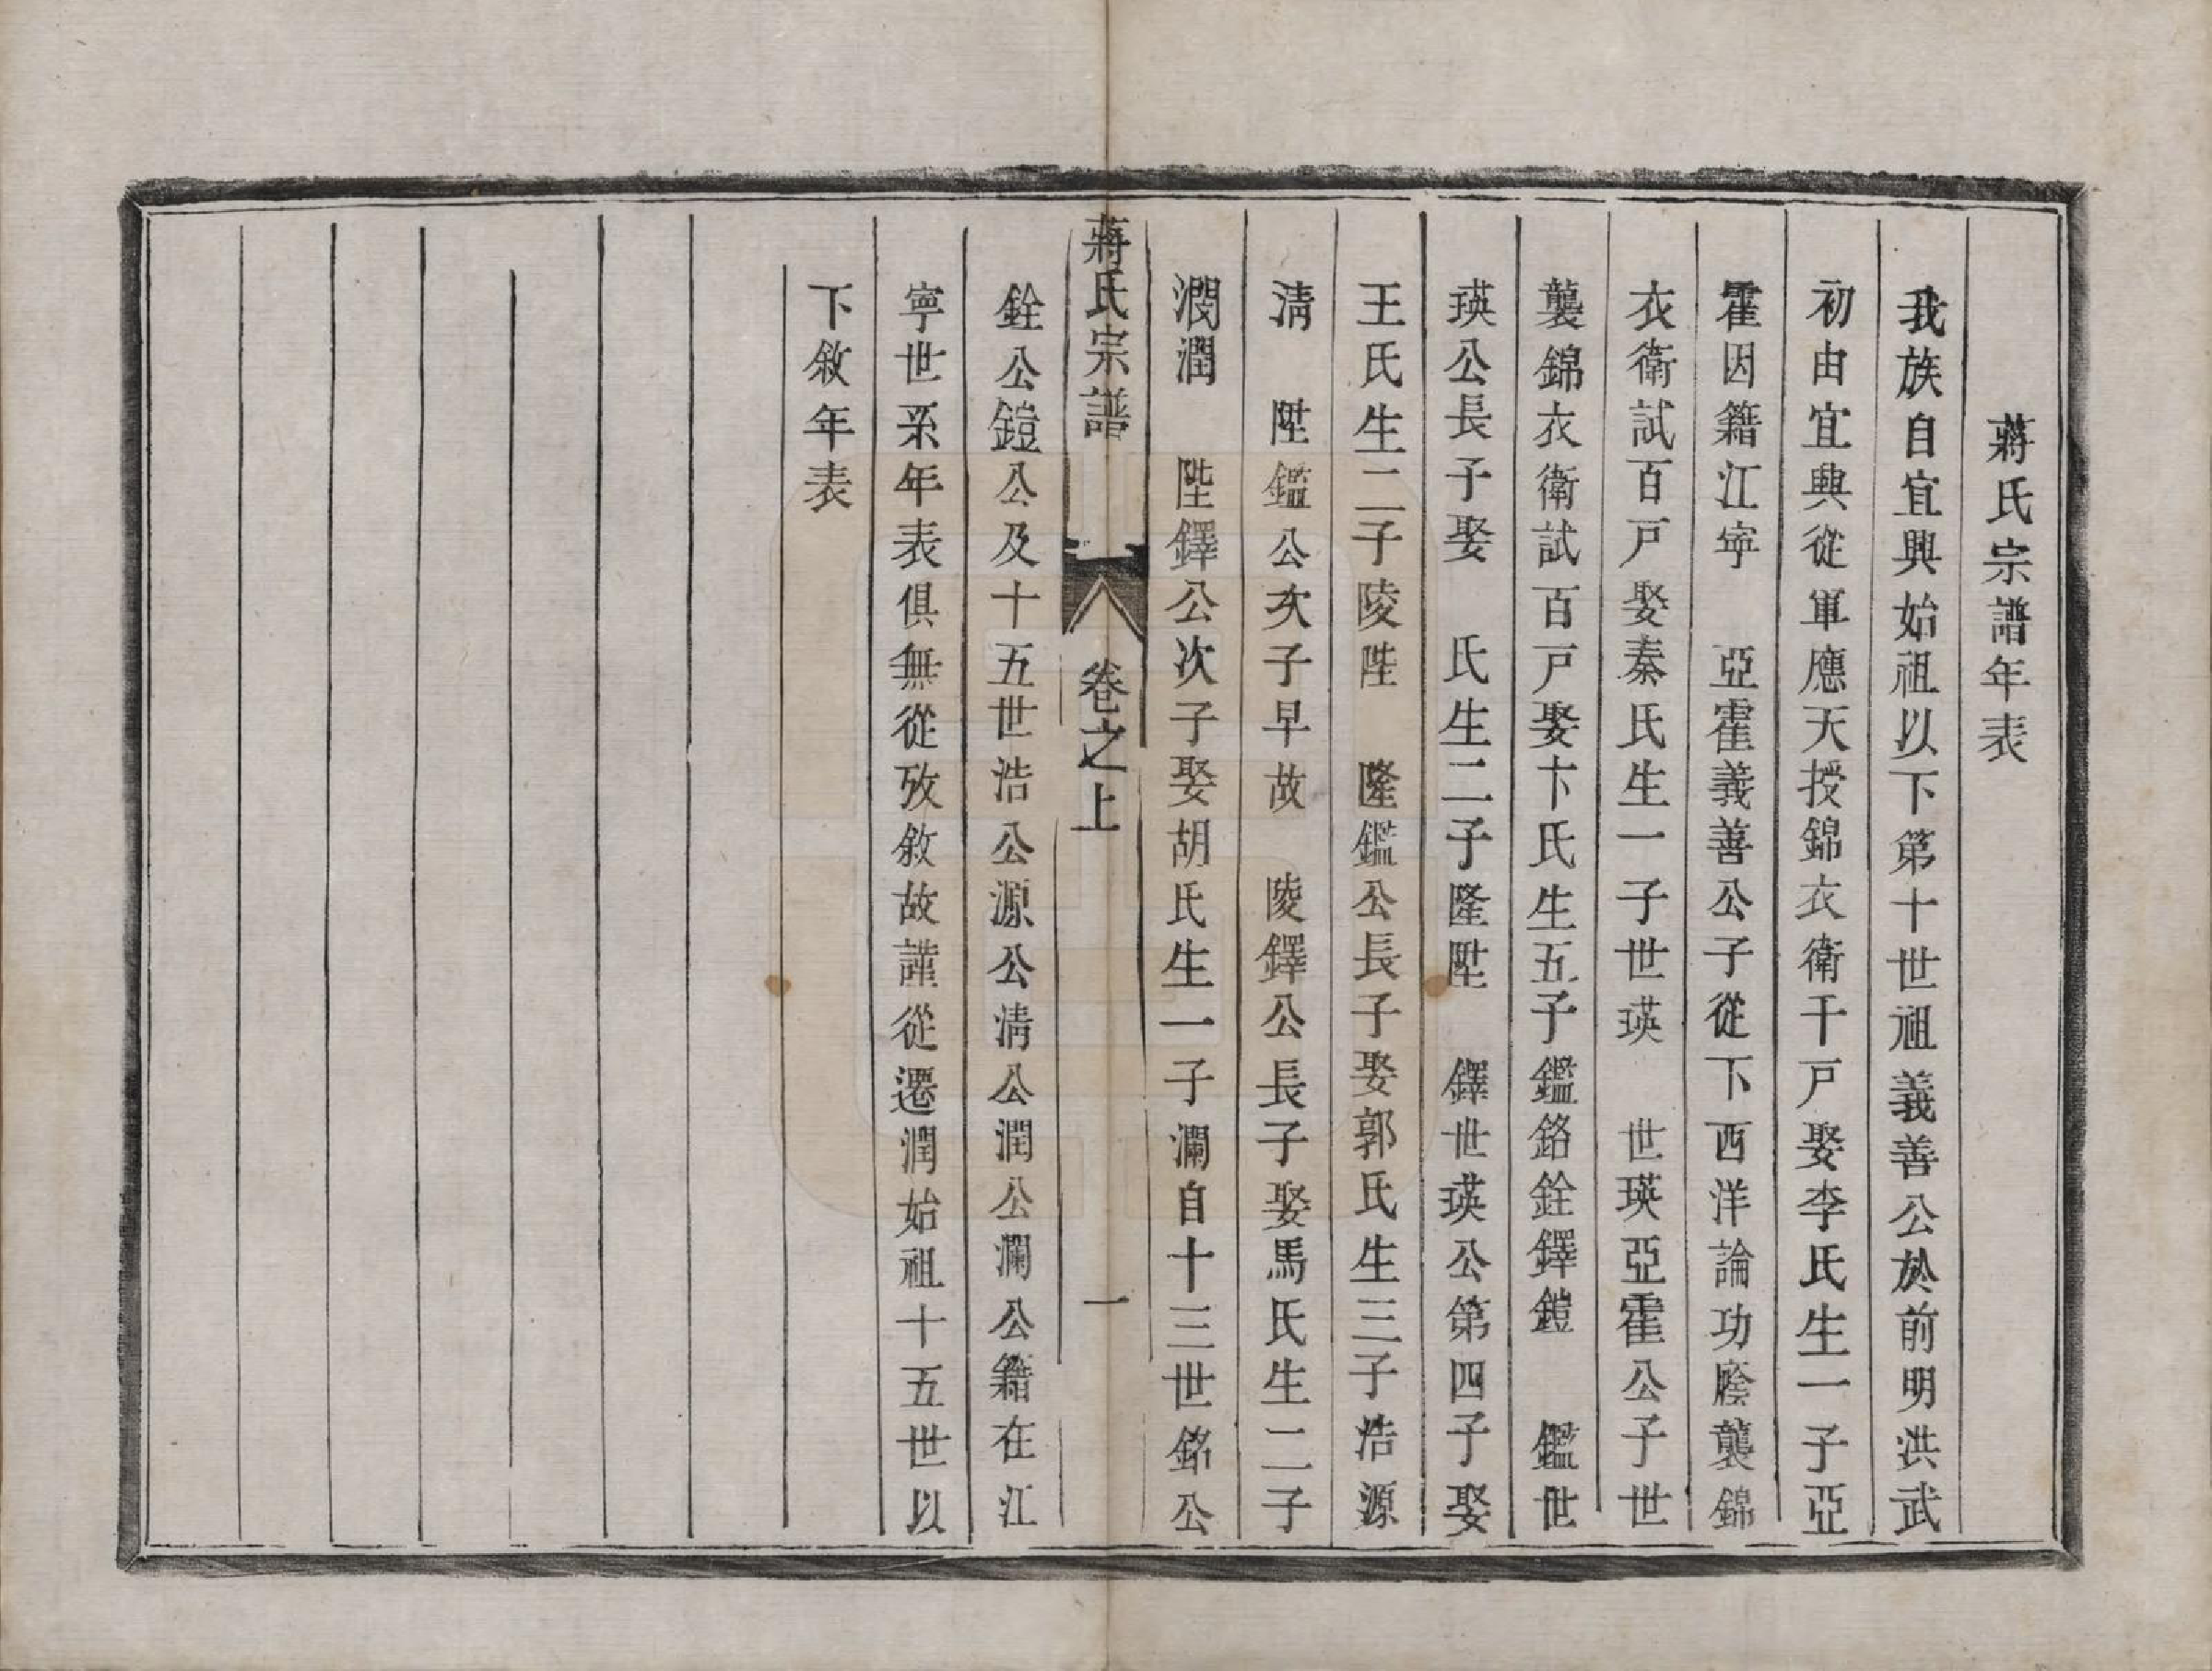 蔣氏宗譜年表
我族自宜興始祖以下第十世祖義善公於前明洪武
初由宜興從軍應天授錦衣衛千戸娶李氏生一子亞
霍因籍江寜　亞霍義善公子從下西洋論功廕襲錦
衣衛試百戸娶秦氏生一子世瑛　世瑛亞霍公子世
襲錦衣衛試百戸娶卞氏生五子鑑銘銓鐸鎧　鑑世
瑛公長子娶　氏生二子隆陞　鐸世瑛公第四子娶
王氏生二子陵陛　隆鑑公長子娶郭氏生三子浩源
淸　陞鑑公次子早故　陵鐸公長子娶馬氏生二子
潤潤　陛鐸公次子娶胡氏生一子瀾自十三世銘公
蔣氏宗譜　卷之上　一
銓公鎧公及十五世浩公源公淸公潤公瀾公籍在江
寧世系年表俱無從攷敘故謹從遷潤始祖十五世以
下敘年表